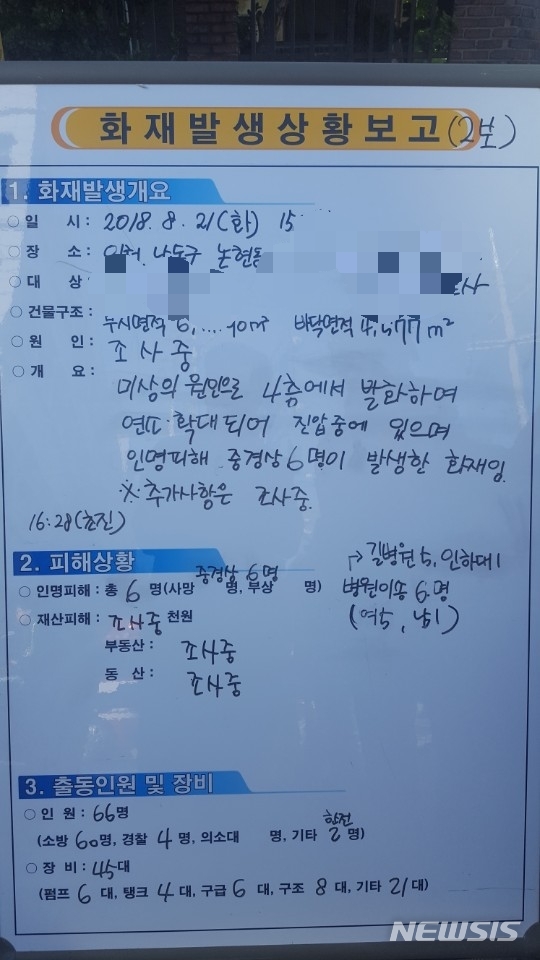 화재발생상황보고(2보)
1. 화재발생개요
○ 일 시 : 2018. 8. 21(화) 15
○ 장 소 : 남동구 논현동
○ 대 상
○ 건물구조 : 바닥면적 4,577m²
○ 원 인 : 조사중
○ 개 요 :
미상의 원인으로 4층에서 발화하여
연소 확대되어 진압중에 있으며
인명피해 중경상 6명이 발생한 화재임
※ 추가사항은 조사중.
16:28(초진)
2. 피해상황
중경상 6명
→ 길병원 5, 인하대 1
○ 인명피해 : 총 6 명(사망 명, 부상 명)
병원이송 6명
○ 재산피해 : 조사중 천원
(여5, 남1)
부동산 : 조사중
동 산 : 조사중
3. 출동인원 및 장비
○ 인 원 : 66명
한전
(소방 60명, 경찰 4 명, 의소대 명, 기타 2 명)
○ 장 비 : 45대
(펌프 6 대, 탱크 4 대, 구급 6 대, 구조 8 대, 기타 21대)
NEWSIS